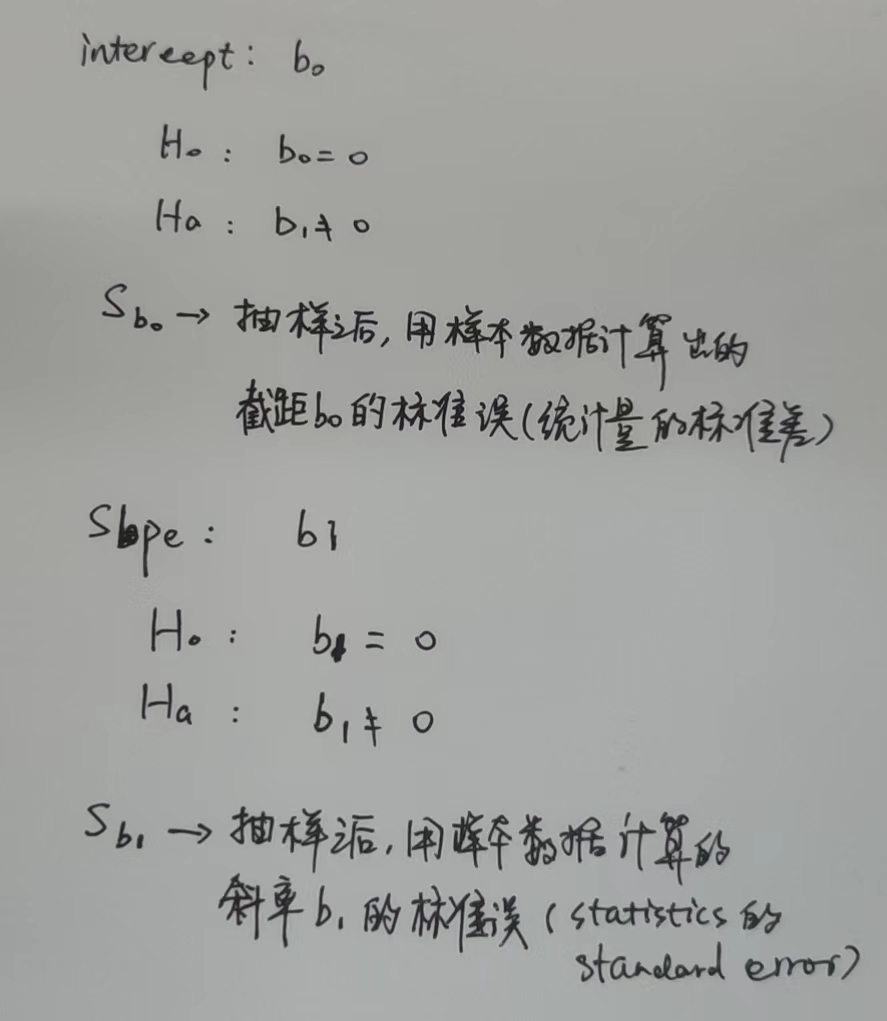 intercept: b₀
H₀: b₀ = 0
Ha: b₁ ≠ 0
S_b₀ → 抽样之后,用样本数据计算出的
截距b₀的标准误(统计量的标准差)
Slope: b1
H₀: b₁ = 0
Ha: b₁ ≠ 0
S_b₁ → 抽样之后,用样本数据计算的
斜率b₁的标准误(statistics的
standard error)